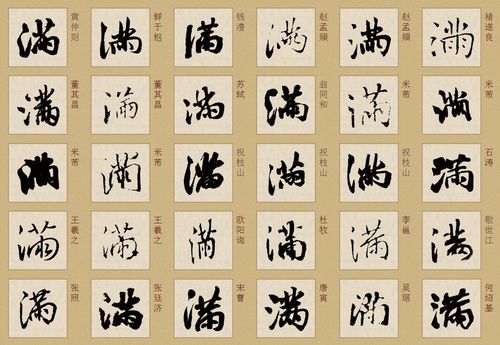 满 黄仲则 满 鲜于枢 满 钱澧 满 赵孟頫 满 赵孟頫 满 褚遂良
满 董其昌 满 董其昌 满 苏轼 满 翁同和 满 米芾 满 米芾
满 米芾 满 米芾 满 祝枝山 满 祝枝山 满 祝枝山 满 石涛
满 王羲之 满 王羲之 满 欧阳询 满 杜牧 满 李邕 满 敬世江
满 张照 满 张廷济 满 宋曹 满 唐寅 满 吴琚 满 何绍基